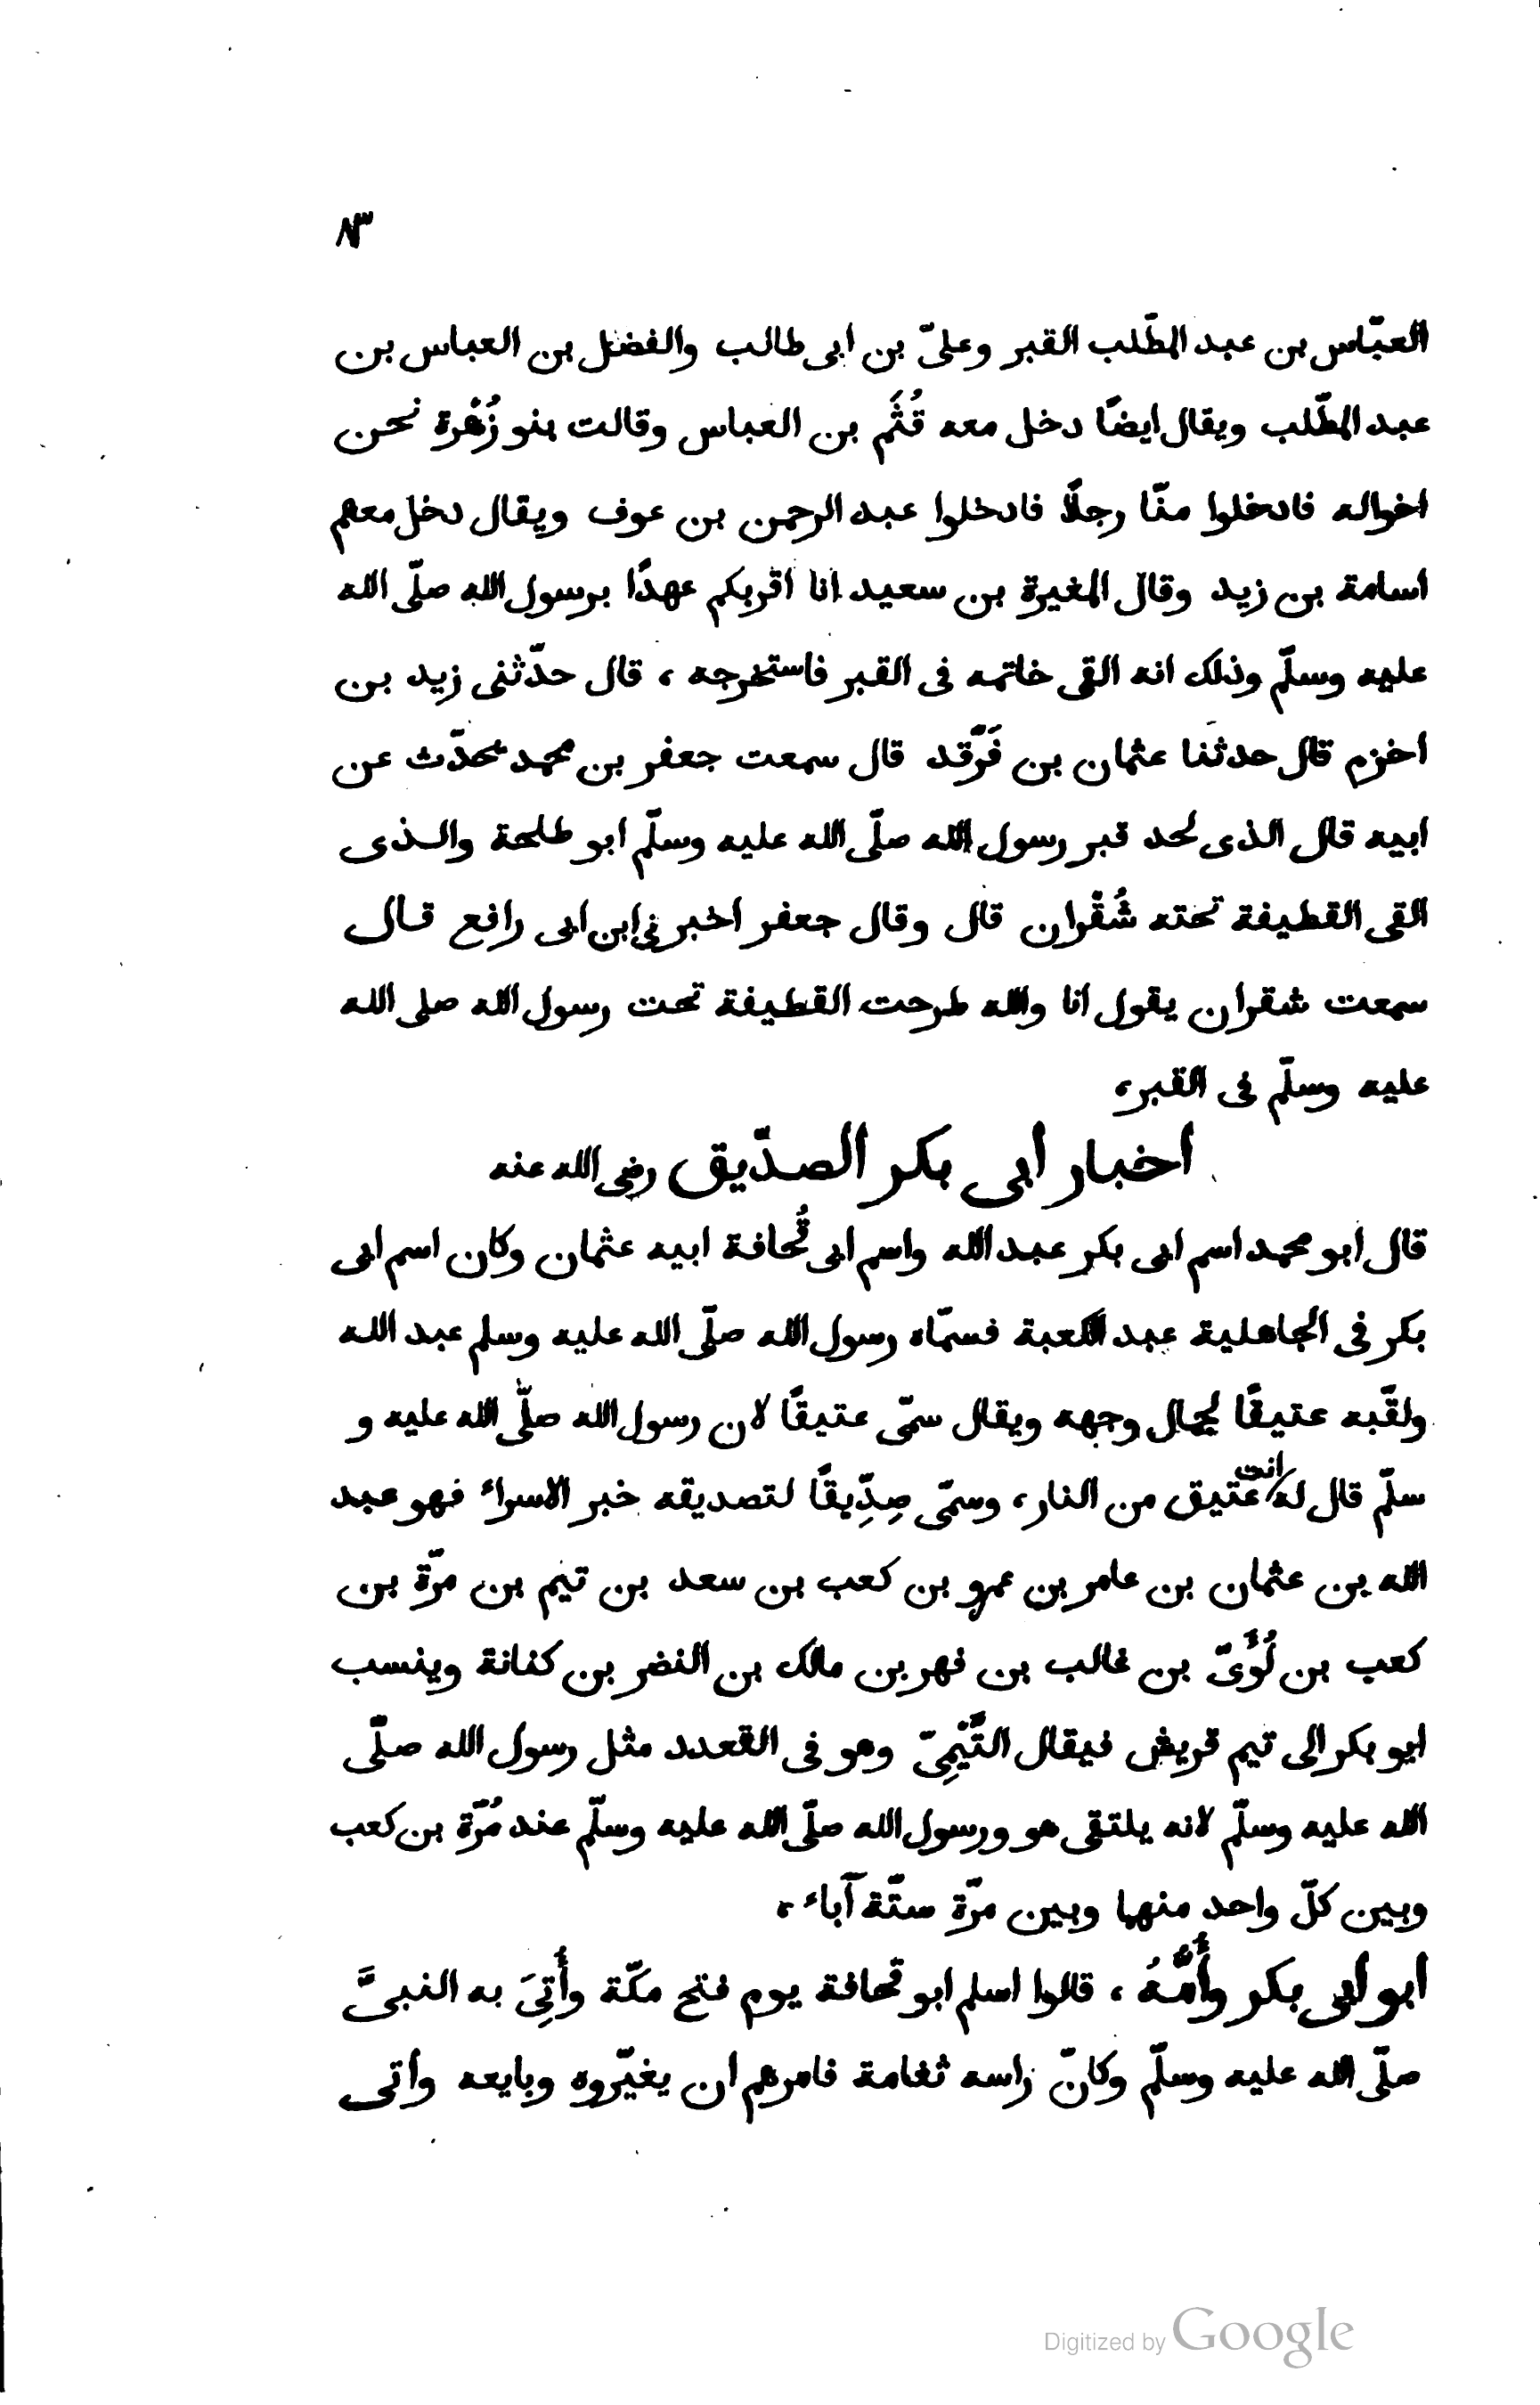 ٨٣
العبّاس بن عبد المطّلب القبر وعلىّ بن ابى طالب والفضل بن العباس بن
عبد المطّلب ويقال ايضًا دخل معه قُثَم بن العباس وقالت بنو زُهْرة نحن
اخواله فادخلوا منّا رجلًا فادخلوا عبد الرحمن بن عوف ويقال دخل معهم
اسامة بن زيد وقال المغيرة بن سعيد انا اقربكم عهدًا برسول الله صلّى الله
عليه وسلّم وذلك انه القى خاتمه فى القبر فاستخرجه ، قال حدّثنى زيد بن
اخزم قال حدثنا عثمان بن فَرْقد قال سمعت جعفر بن محمد يحدّث عن
ابيه قال الذى لحد قبر رسول الله صلّى الله عليه وسلّم ابو طلحة والذى
القى القطيفة تحته شُقْران قال وقال جعفر اخبرنى ابن ابى رافع قال
سمعت شقران يقول انا والله طرحت القطيفة تحت رسول الله صلى الله
عليه وسلّم فى القبر،
اخبار ابى بكر الصدّيق رضى الله عنه
قال ابو محمد اسم ابى بكر عبد الله واسم ابى قُحافة ابيه عثمان وكان اسم ابى
بكر فى الجاهلية عبد الكعبة فسمّاه رسول الله صلّى الله عليه وسلم عبد الله
ولقّبه عتيقًا لجمال وجهه ويقال سمّى عتيقًا لان رسول الله صلّى الله عليه و
سلّم قال له انت عتيق من النار، وسمّى صِدِّيقًا لتصديقه خبر الاسراء فهو عبد
الله بن عثمان بن عامر بن عمرو بن كعب بن سعد بن تيم بن مرّة بن
كعب بن لُؤَىّ بن غالب بن فهر بن مالك بن النضر بن كنانة وينسب
ابو بكر الى تيم قريش فيقال التَّيْمِىّ وهو فى القعدد مثل رسول الله صلّى
الله عليه وسلّم لانه يلتقى هو ورسول الله صلّى الله عليه وسلّم عند مُرّة بن كعب
وبين كلّ واحد منهما وبين مرّة ستّة آباء ،
ابو ابى بكر وأُمُّهُ ، قالوا اسلم ابو قحافة يوم فتح مكّة وأُتِىَ به النبىَّ
صلّى الله عليه وسلّم وكانّ راسه ثغامة فامرهم ان يغيّروه وبايعه واتى
Digitized by Google